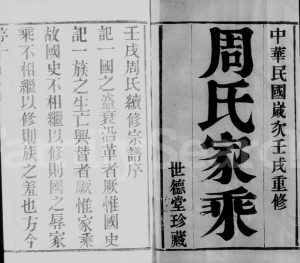 中華民國歲次壬戌重修
周氏家乘
世德堂珍藏
壬戌周氏續修宗譜序
記一國之盛衰沿革者厥惟國史
記一族之生亡興替者厥惟家乘
故國史不相繼以修則國之辱家
乘不相繼以修則族之羞也方今
序一